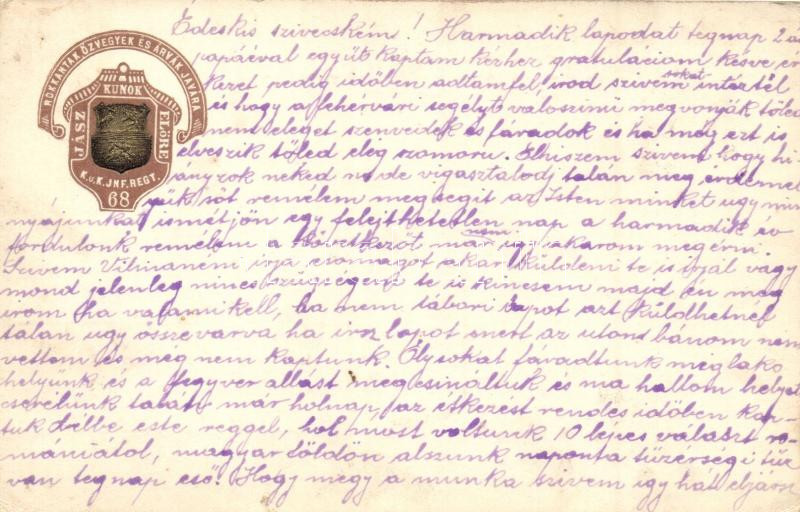 ROKKANTAK ÖZVEGYEK ÉS ÁRVÁK JAVÁRA
JÁSZ KUNOK ELŐRE
K.u.K. JNF. REGT.
68
Édeskis szivecském! Harmadik lapodat tegnap 2 á
papáéval együtt kaptam kézhez gratulációm késve ér
kezet pedig időben adtamfel, irod szivem sokat intéztél
is hogy a fehérvári segélyt valoszinü megvonják tőled
nem eleget szenvedek és fáradok és ha még ezt is
elveszik tőled elég szomorú. Elhiszem szivem hogy hi
ányzok neked no de vigasztalodj talán meg érdemel
jük sőt remélem meg segit az Isten minket ugy mind
nyájunkat ismét jön egy felejthetetlen nap a harmadik év
fordulónk remélem a következőt már nem igy akarom megérni.
Szivem Vilmanéni irja csomagot akar küldeni te is irjál vagy
mond jelenleg nincs szükségem te is kincsem majd én meg
irom ha valami kell, ha nem tábori lapot azt küldhetnél
talán ugy összevarva ha irsz lapot mert az utons bánom nem
vettem és meg nem kaptunk. Oly sokat fáradtunk meglakó
helyünk és a fegyver allást megcsináltuk és ma hallom helyet
cserélünk talán már holnap, az étkezést rendes időben kap
tuk délbe este reggel, hol most voltunk 10 lépés választ ro
mániától, magyar földön alszunk naponta tüzérségi tüz
van tegnap eső! Hogy megy a munka szivem igy hát eljársz